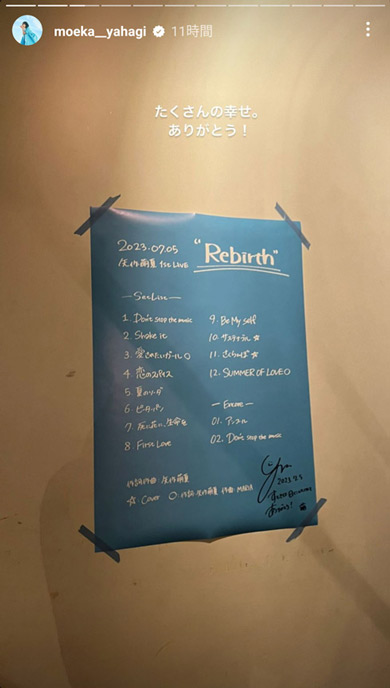 moeka__yahagi 11時間
たくさんの幸せ。
ありがとう！
2023.07.05 "Rebirth"
矢作萌夏 1st LIVE
— Set List —
1. Don't stop the music
2. Shake it
3. 愛されたいガール○
4. 恋のスパイス
5. 夏のソーダ
6. ピーターパン
7. 花に
8. First Love
9. Be My self
10.
11. さくらんぼ ☆
12. SUMMER OF LOVE○
— Encore —
01.
02. Don't stop the music
作詞作曲 矢作萌夏
☆: Cover ○: 作詞:矢作萌夏 作曲:
2023.7.5